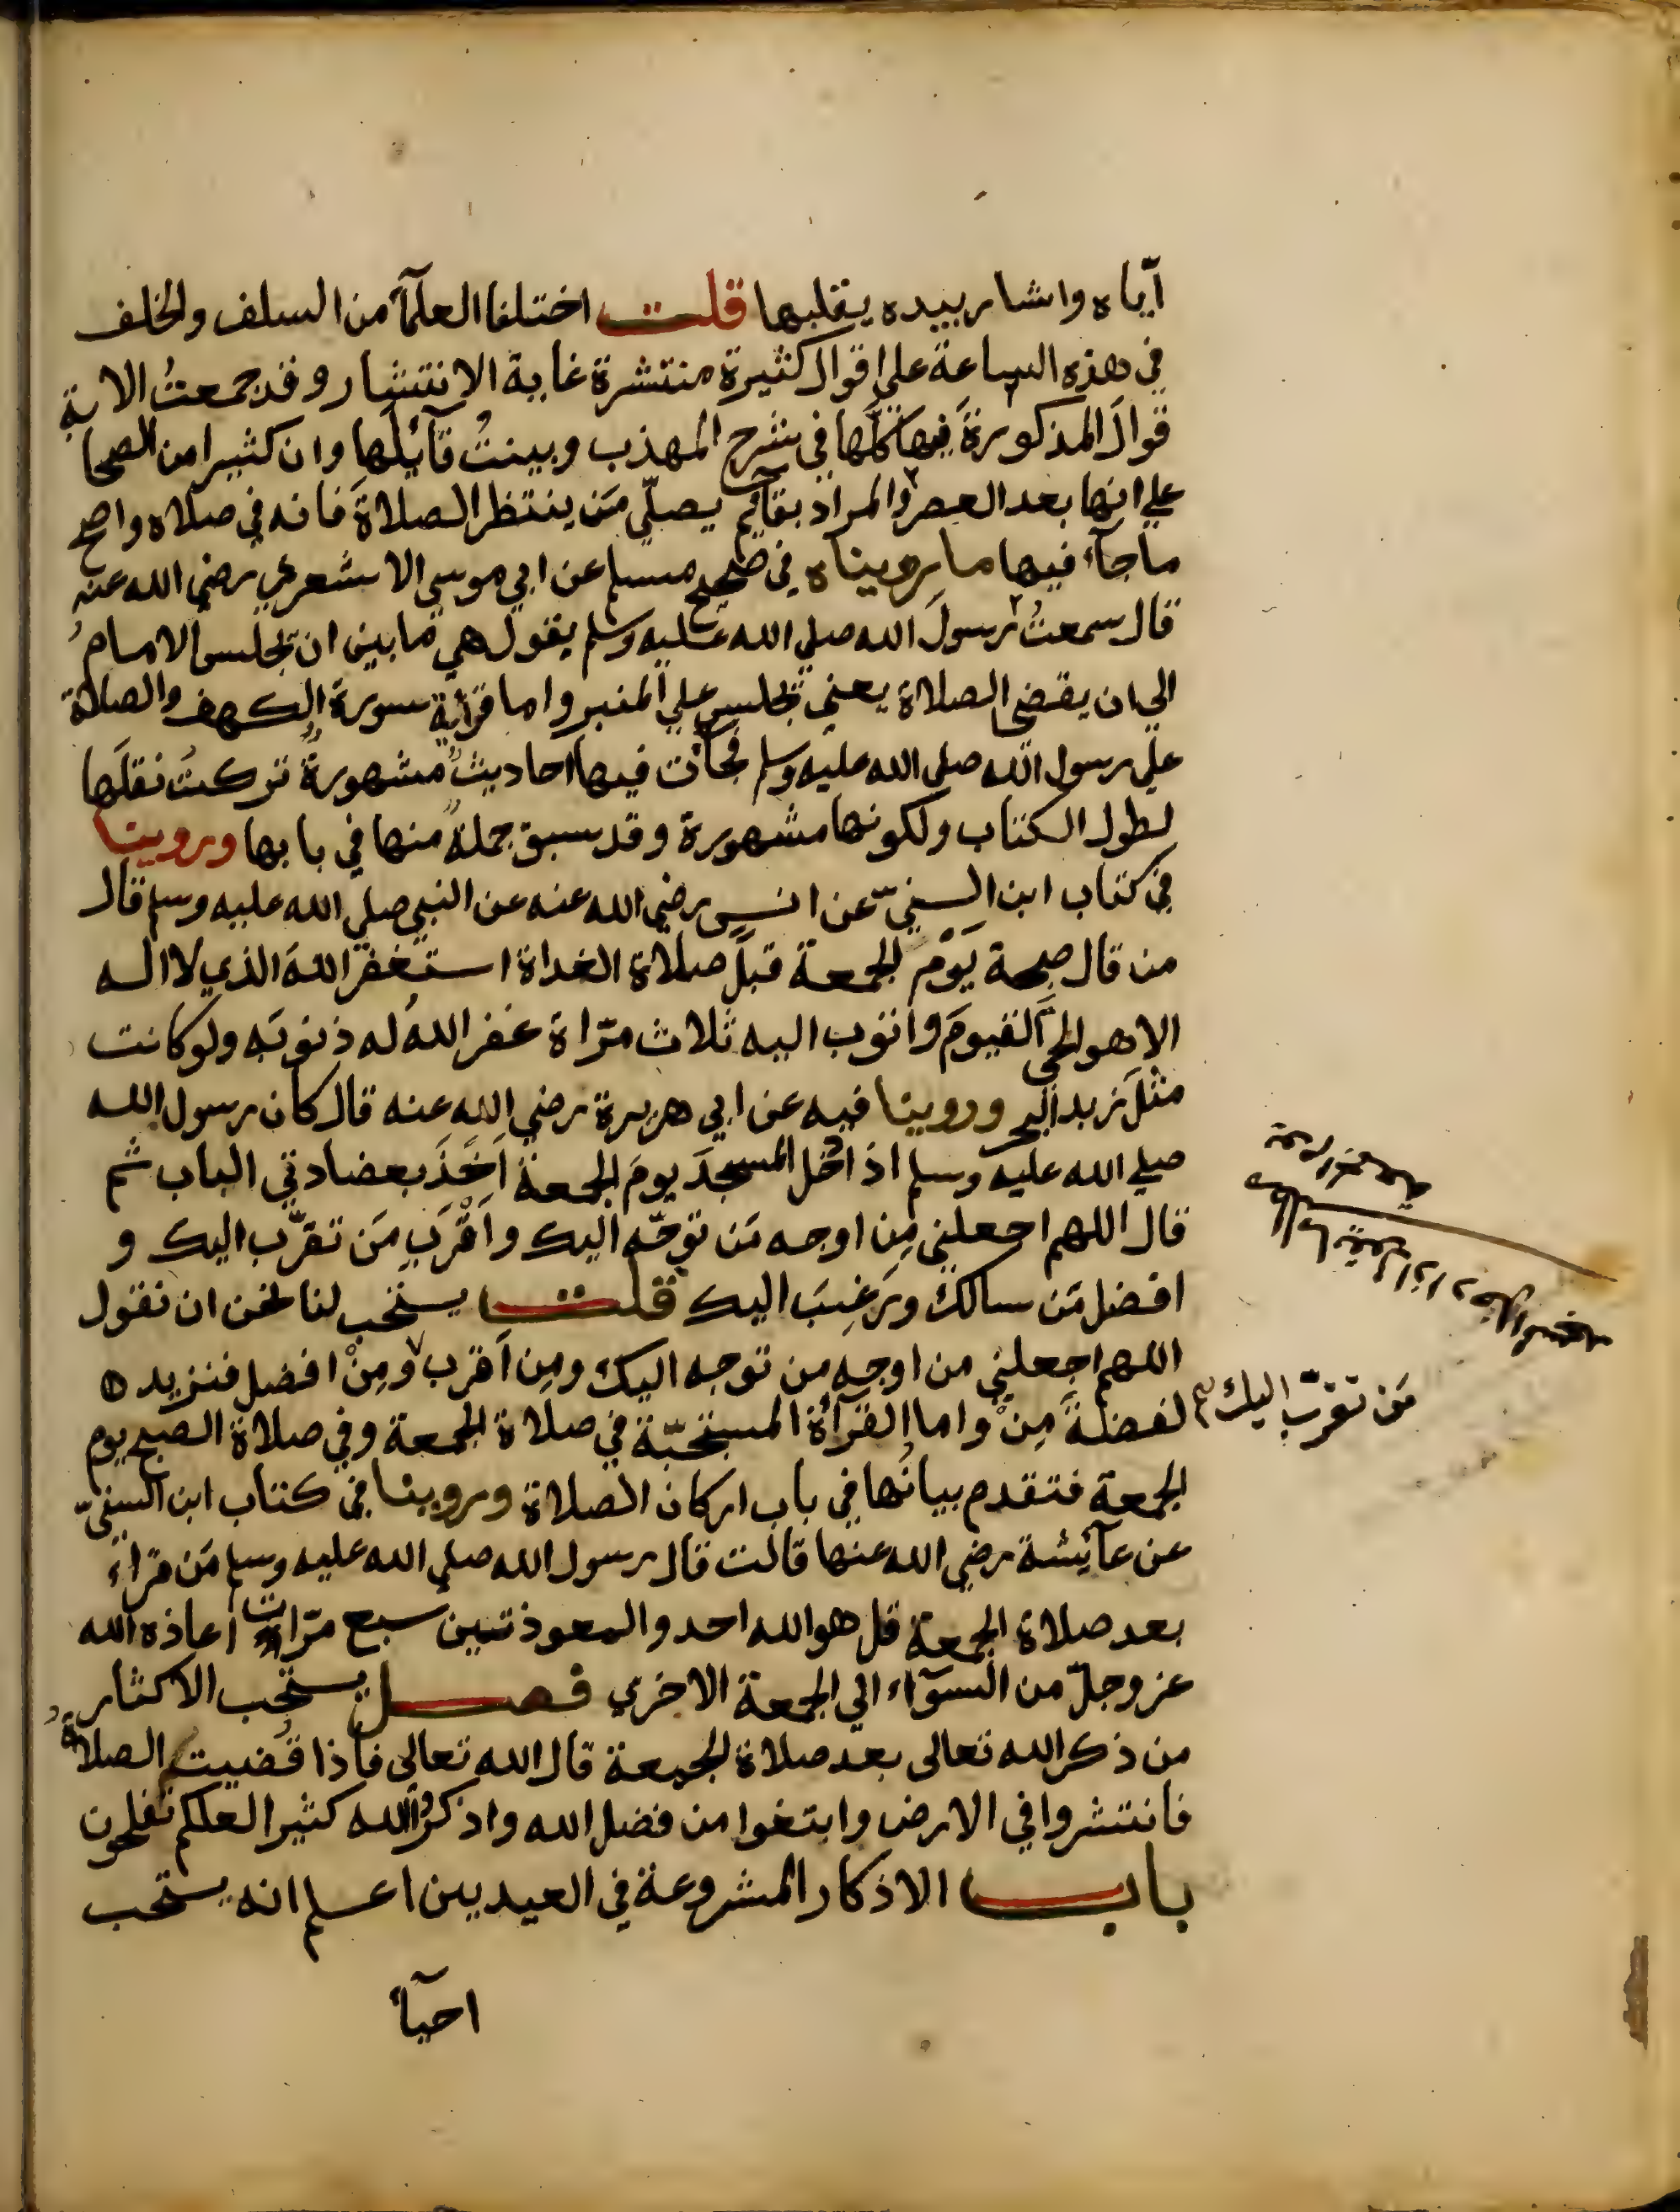 آيّاه واشار بيده يقلبها قلت اختلفا العلمآ من السلف والخلف
في هذه الساعة علي اقوال كثيرة منتشرة غاية الانتشار وقد جمعتُ الا
قوالَ المذكورةَ فيها كلَّها في شرح المهذب وبينتُ قآئلَها وان كثيرا من الصحابة
علي انها بعد العصر والمراد بقآيم يصلّي مَن ينتظر الصلاةَ فانه في صلاه واصح
ما جآء فيها ما رويناه في صحيح مسلم عن ابي موسي الاشعري رضي الله عنه
قال سمعتُ رسولَ الله صلي الله عليه وسلم يقول هي ما بين ان يجلس الامامُ
الي ان يقضي الصلاة يعني يجلس علي المنبر واما قرآية سورة الكهف والصلاة
علي رسول الله صلي الله عليه وسلم فجآت فيها احاديثٌ مشهورةٌ تركتُ نقلَها
لطول الكتاب ولكونها مشهورة وقد سبق جملةٌ منها في بابها وروينا
في كتاب ابن السنيّ عن انسٍ رضي الله عنه عن النبي صلي الله عليه وسلم قال
من قال صبحة يَوْم الجمعة قبلَ صلاة الغداة استغفر اللهَ الذي لا اله
الا هو الحيَّ القيومَ واتوب اليه ثلاث مرّاة غفر اللهُ له ذنوبَه ولو كانت
مثلَ زبد البحر وروينا فيه عن ابي هريرة رضي الله عنه قال كان رسول الله
صلي الله عليه وسلم اذا دخل المسجدَ يومَ الجمعة اَخَذَ بعضادتي الباب ثم
قال اللهم اجعلني مِن اوجه مَن توجّه اليك واَقْرَبِ مَن تقرّب اليك و
افضل مَن سالك ورَغِبَ اليك قلت يستحب لنا نحن ان نقول
اللهم اجعلني من اوجه من توجه اليك ومِن اَقرب ومِنْ افضل فنزيد
لفظةَ مِنْ واما القرآةُ المستحبّة في صلاة الجمعة وفي صلاة الصبح يوم
مَن تقرّب اليك
الجمعة فتقدم بيانُها في باب اركان الصلاة وروينا في كتاب ابن السنيّ
عن عآئشة رضي الله عنها قالت قال رسول الله صلي الله عليه وسلم مَن قراءَ
بعد صلاة الجمعة قل هو الله احد والمعوذتين سبع مرّات اعاذه الله
عز وجلّ من السوٓاء الي الجمعة الاخري فصل يستحب الاكثار
من ذكر الله تعالى بعد صلاة الجمعة قال الله تعالى فاذا قُضيت الصلاةُ
فانتشروا في الارض وابتغوا من فضل الله واذكروا الله كثيرا لعلكم تفلحون
باب الاذكار المشروعة في العيدين اعلم انه يستحب
احيآء